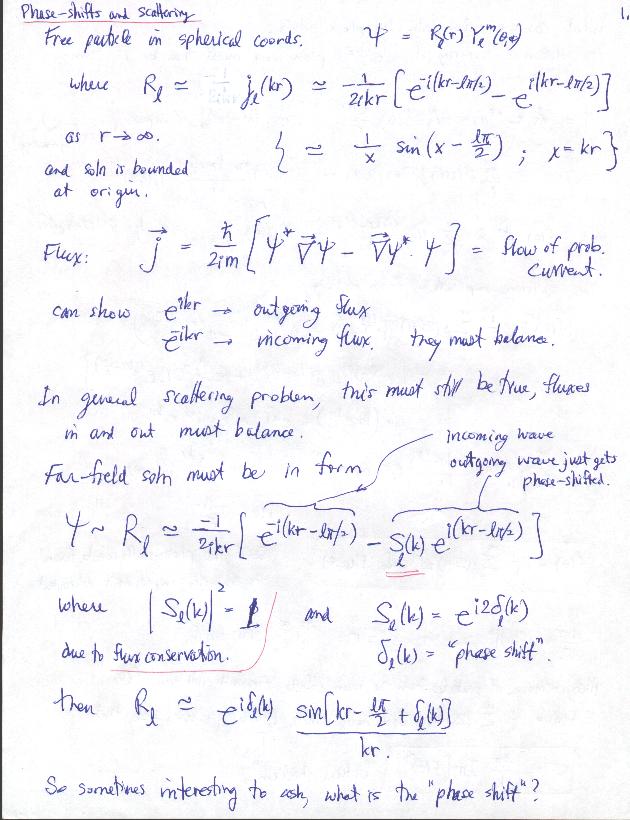 Phase-shifts and scattering
1.
Free particle in spherical coords. Ψ = R_l(r) Y_l^m(θ,φ)
where R_l ≃ j_l(kr) ≃ -1/2ikr [e^{-i(kr-lπ/2)} - e^{i(kr-lπ/2)}]
as r→∞. { ≃ 1/x sin(x - lπ/2) ; x = kr }
and soln is bounded
at origin.
Flux: j⃗ = ħ/2im [Ψ* ∇⃗Ψ - ∇⃗Ψ*·Ψ] = flow of prob.
current.
can show e^{ikr} → outgoing flux
e^{-ikr} → incoming flux. they must balance.
In general scattering problem, this must still be true, fluxes
in and out must balance.
incoming wave
outgoing wave just gets
phase-shifted.
Far-field soln must be in form
Ψ ~ R_l ≃ -1/2ikr [e^{-i(kr-lπ/2)} - S_l(k) e^{i(kr-lπ/2)}]
where |S_l(k)|² = 1 and S_l(k) = e^{i2δ_l(k)}
due to flux conservation. δ_l(k) = "phase shift".
then R_l ≃ e^{iδ_l(k)} sin[kr - lπ/2 + δ_l(k)]
kr.
So sometimes interesting to ask, what is the "phase shift"?